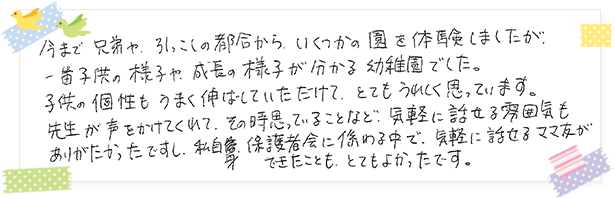 今まで兄弟や、引っこしの都合から、いくつかの園を体験しましたが、
一番子供の様子や、成長の様子が分かる幼稚園でした。
子供の個性もうまく伸ばしていただけて、とてもうれしく思っています。
先生が声をかけてくれて、その時思っていることなど、気軽に話せる雰囲気も
ありがたかったですし、私自身、保護者会に係わる中で、気軽に話せるママ友が
できたことも、とてもよかったです。